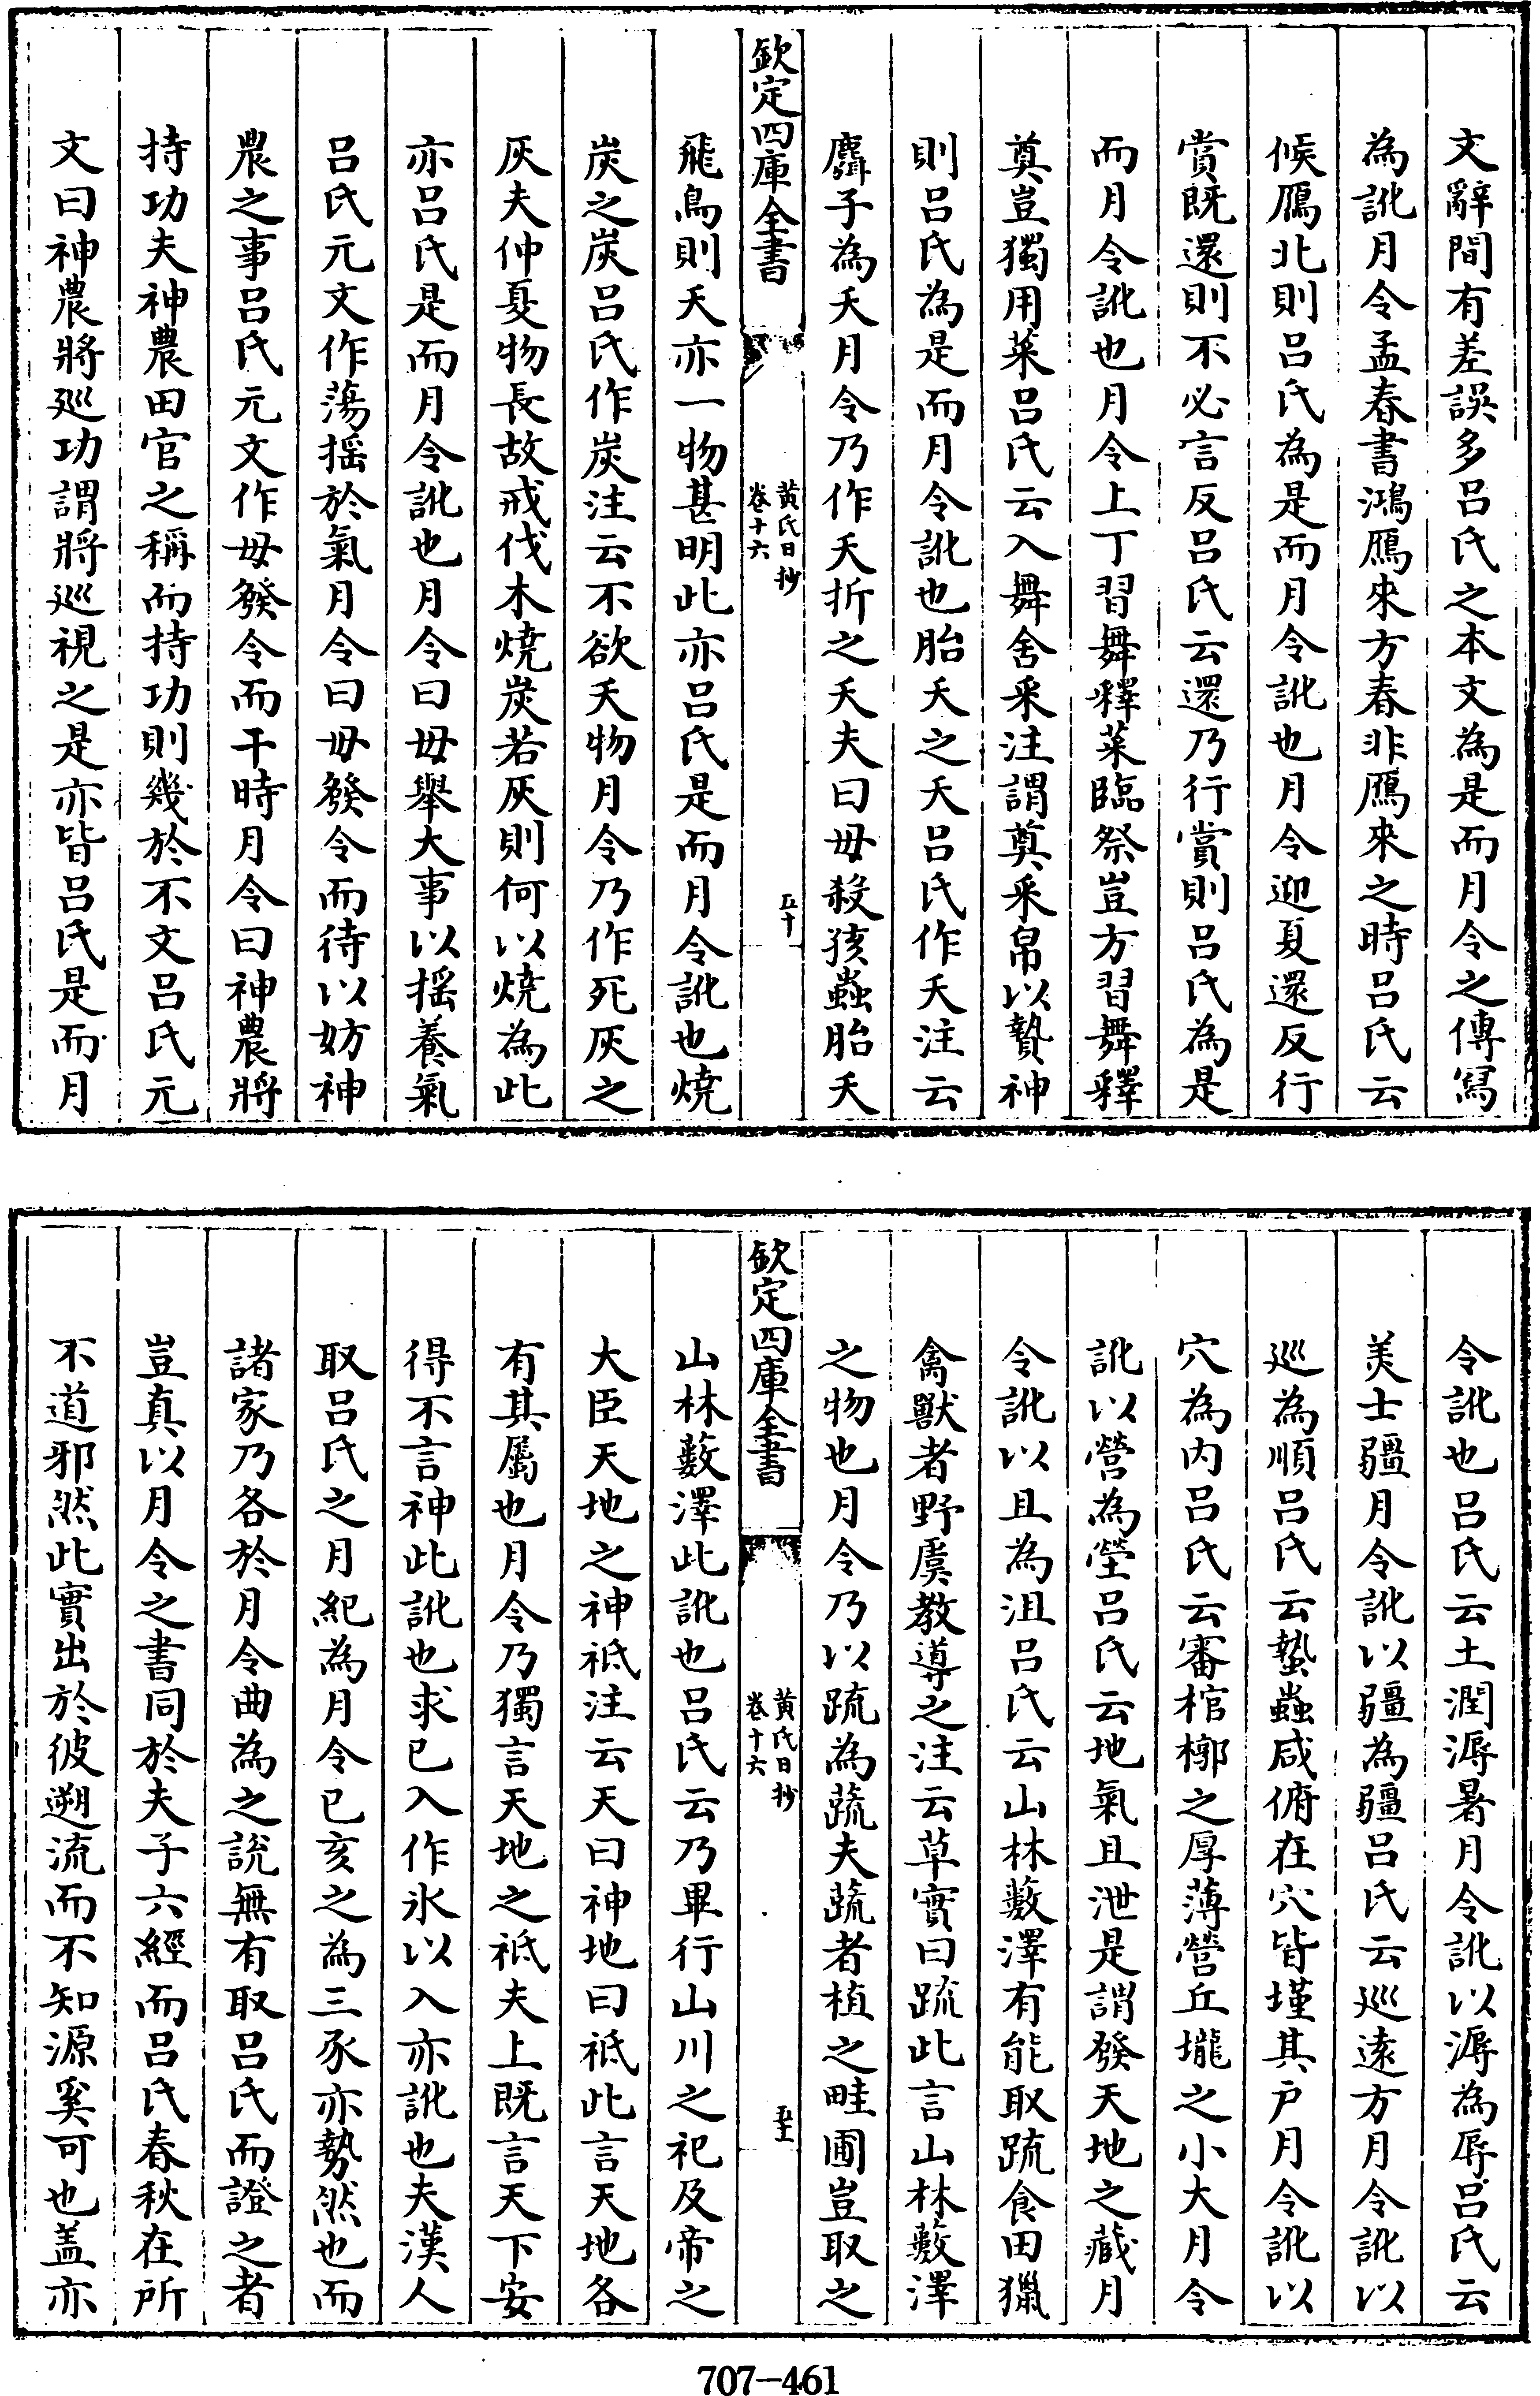 文辭間有差誤多呂氏之本文為是而月令之傳寫
為訛月令孟春書鴻鴈來方春非鴈來之時呂氏云
候鴈北則呂氏為是而月令訛也月令迎夏還反行
賞既還則不必言反呂氏云還乃行賞則呂氏為是
而月令訛也月令上丁習舞釋菜臨祭豈方習舞釋
奠豈獨用菜呂氏云入舞舍采注謂奠采帛以贄神
則呂氏為是而月令訛也胎夭之夭呂氏作夭注云
麛子為夭月令乃作夭折之夭夫曰毋殺孩蟲胎夭
欽定四庫全書
黄氏日抄
卷十六
五十
飛鳥則夭亦一物甚明此亦呂氏是而月令訛也燒
炭之炭呂氏作炭注云不欲夭物月令乃作死灰之
灰夫仲夏物長故戒伐木燒炭若灰則何以燒為此
亦呂氏是而月令訛也月令曰毋舉大事以揺養氣
呂氏元文作蕩揺於氣月令曰毋發令而待以妨神
農之事呂氏元文作毋發令而干時月令曰神農將
持功夫神農田官之稱而持功則幾於不文呂氏元
文曰神農將巡功謂將巡視之是亦皆呂氏是而月
令訛也呂氏云土潤溽暑月令訛以溽為辱呂氏云
美士疆月令訛以疆為疆呂氏云巡逺方月令訛以
巡為順呂氏云蟄蟲咸俯在穴皆墐其戸月令訛以
穴為内呂氏云審棺槨之厚薄營丘壠之小大月令
訛以營為塋呂氏云地氣且泄是謂發天地之藏月
令訛以且為沮呂氏云山林藪澤有能取疏食田獵
禽獸者野虞教導之注云草實曰疏此言山林藪澤
之物也月令乃以疏為蔬夫蔬者植之畦圃豈取之
欽定四庫全書
黄氏日抄
卷十六
五十一
山林藪澤此訛也呂氏云乃畢行山川之祀及帝之
大臣天地之神祗注云天曰神地曰祗此言天地各
有其屬也月令乃獨言天地之祗夫上既言天下安
得不言神此訛也求已入作氷以入亦訛也夫漢人
取呂氏之月紀為月令已亥之為三豕亦勢然也而
諸家乃各於月令曲為之説無有取呂氏而證之者
豈真以月令之書同於夫子六經而呂氏春秋在所
不道邪然此實出於彼遡流而不知源奚可也盖亦
707-461